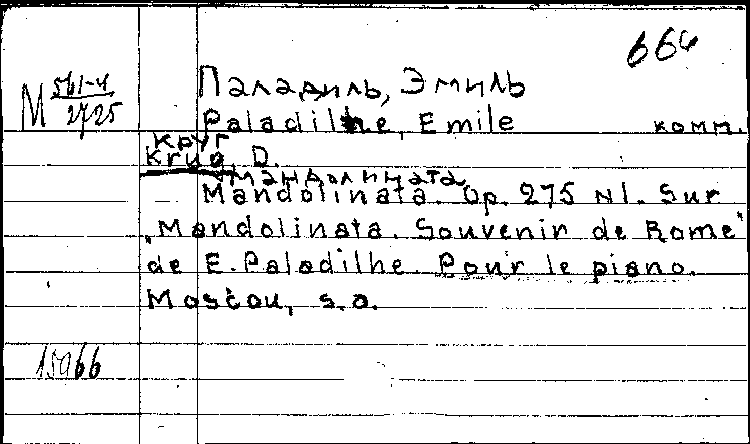 664
Паладиль, Эмиль
М 561-4
2725
Paladilhe, Emile комм.
Круг
Krug, D.
Мандолината
Mandolinata. Op. 275 N1. Sur
"Mandolinata. Souvenir de Rome"
de E. Paladilhe. Pour le piano.
Moscou, s.a.
15966